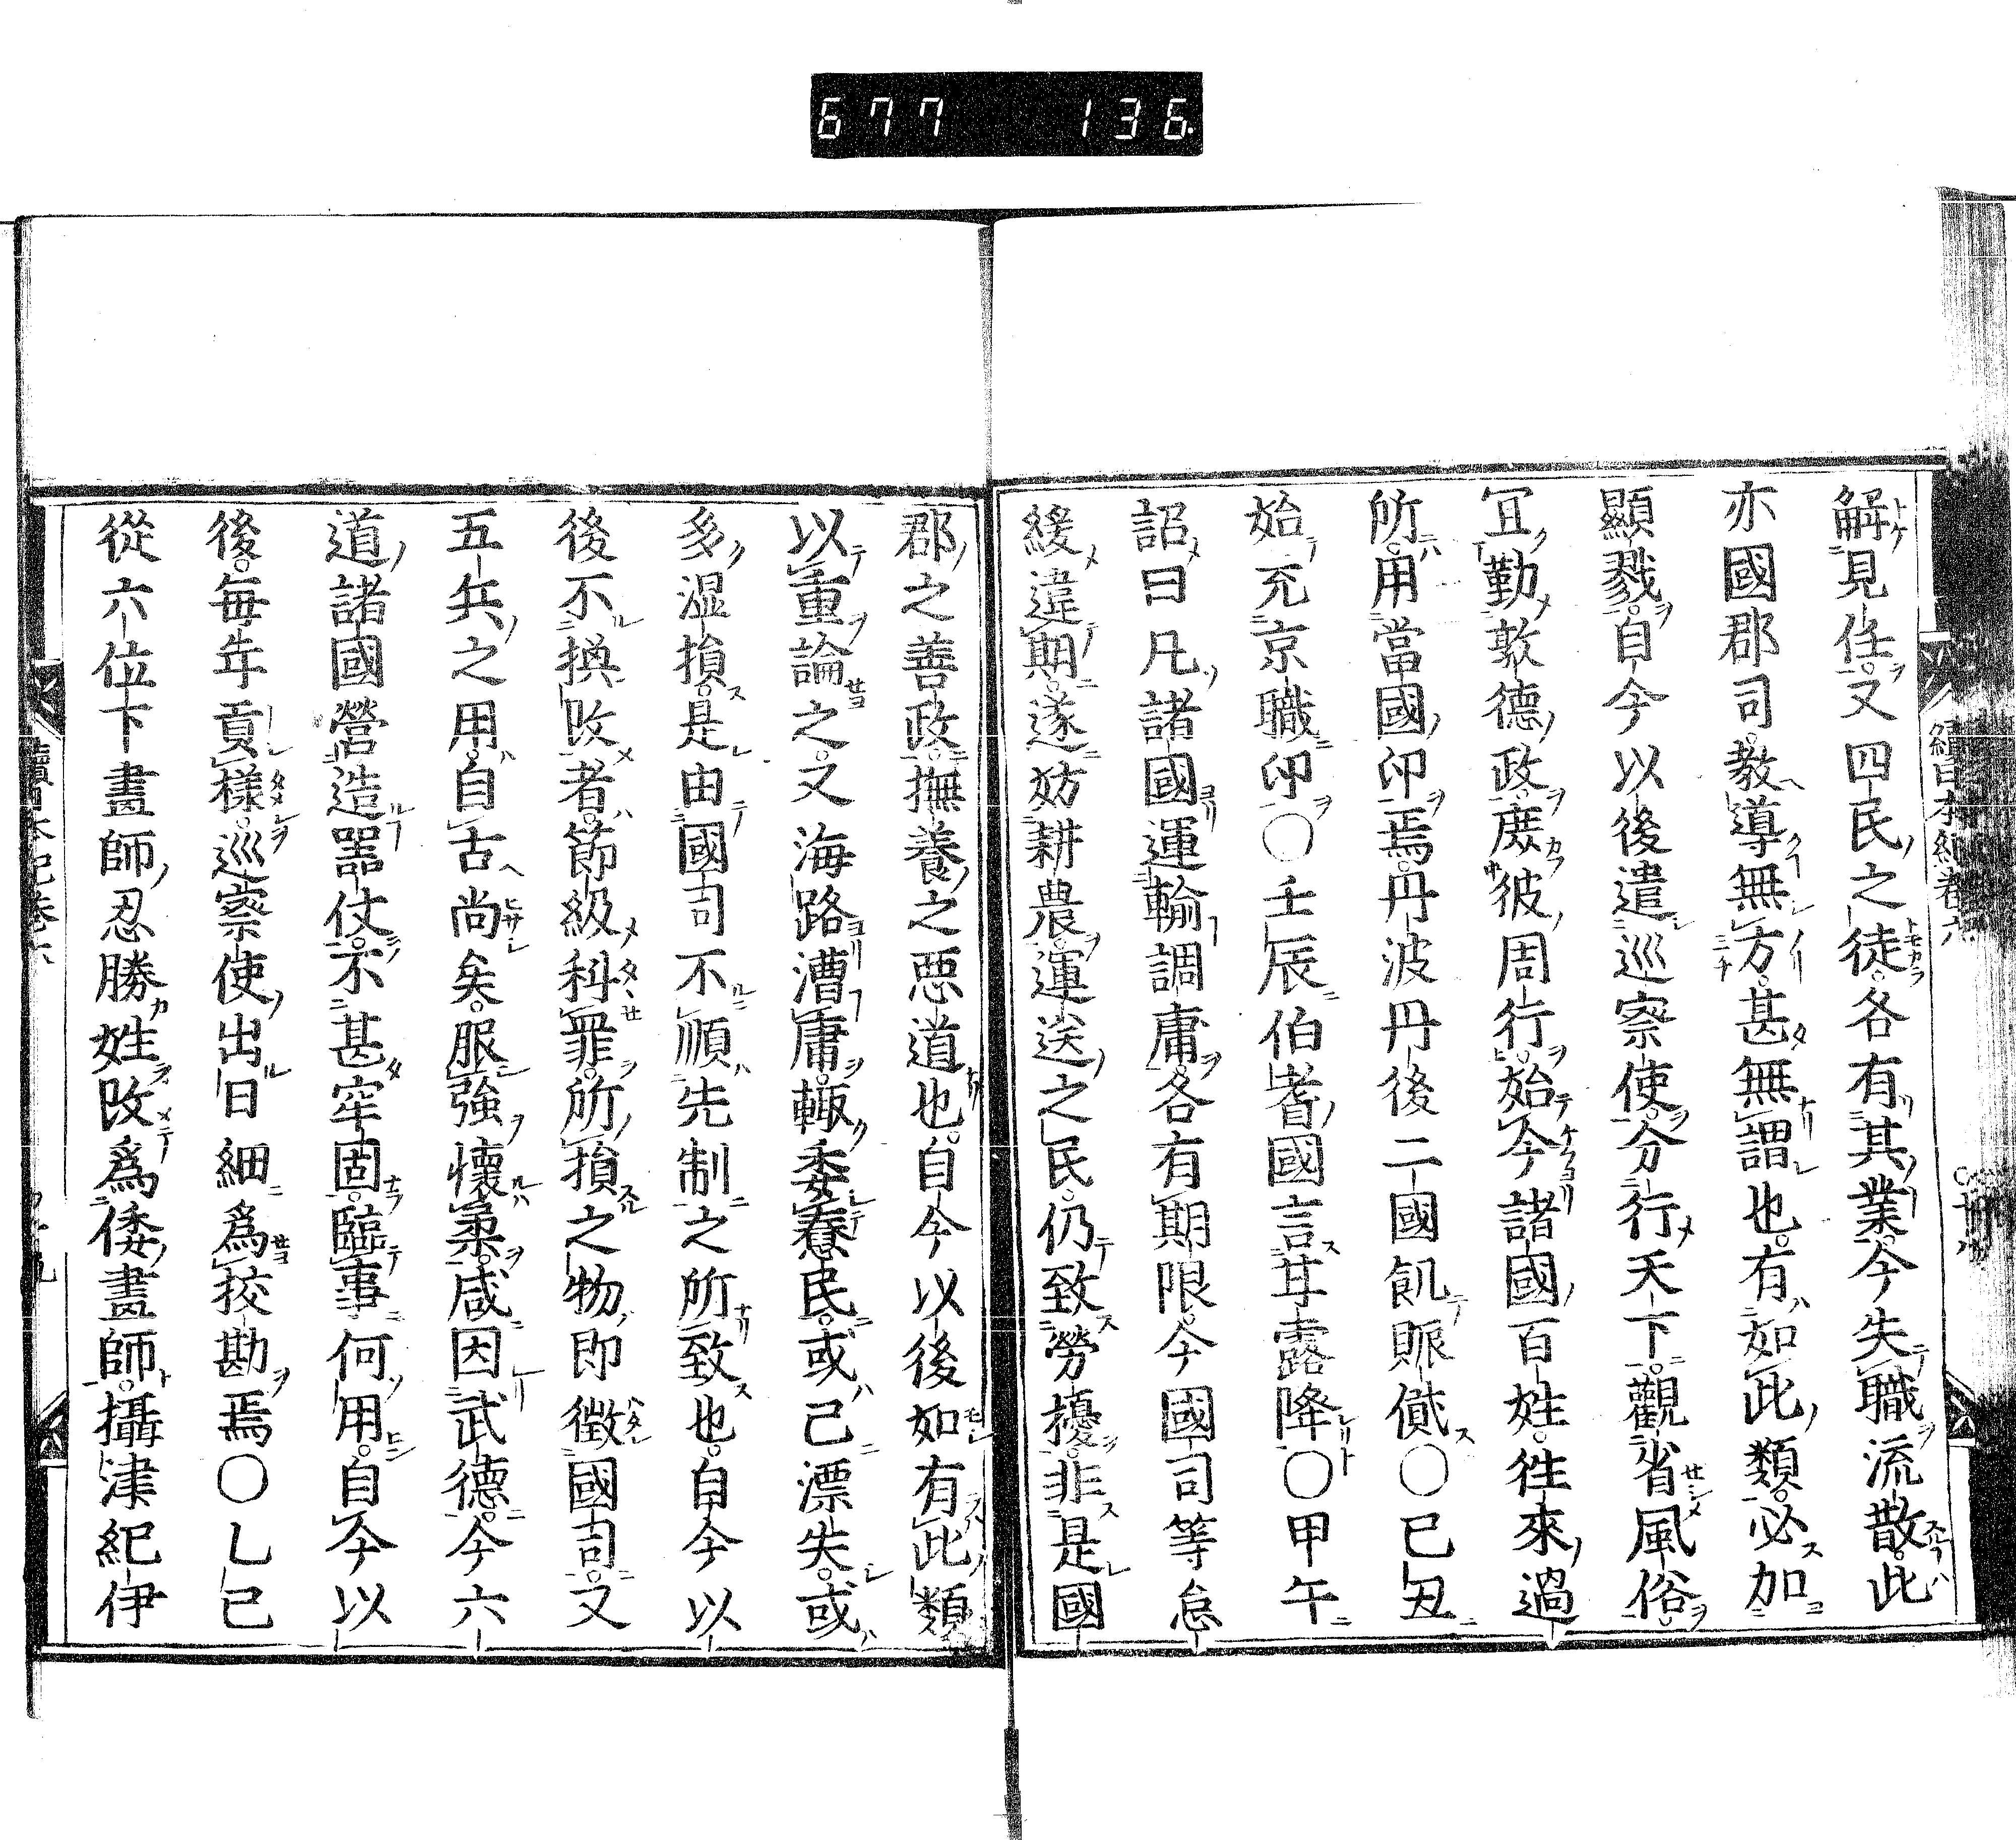 677 136
解見任。又四民之徒。各有其業。今失職流散。此
亦國郡司。教導無方。甚無謂也。有如此類。必加
顯戮。自今以後遣巡察使。分行天下。觀省風俗。
冝勤敦德政。庶彼周行。始今諸國百姓。徃來過
所。用當國印焉。丹波丹後二國飢賑貸〇己丑
始充京職印〇壬辰伯耆國言甘露降〇甲午
詔曰凡諸國運輸調庸。各有期限。今國司等怠
緩違期。遂妨耕農。運送之民。仍致勞擾。非是國
郡之善政。撫養之惡道也。自今以後如有此類
以重論之。又海路漕庸。輙委惷民。或已漂失。或
多湿損。是由國司不順先制之所致也。自今以
後不換改者。節級科罪。所損之物即徵國司。又
五兵之用。自古尚矣。服強懷柔。咸因武德。今六
道諸國營造器仗。不甚牢固。臨事何用。自今以
後。毎年貢樣。巡察使出日細爲挍勘焉〇乚巳
從六位下畫師忍勝姓改爲倭畫師。攝津紀伊
續日本紀卷六
〇十八